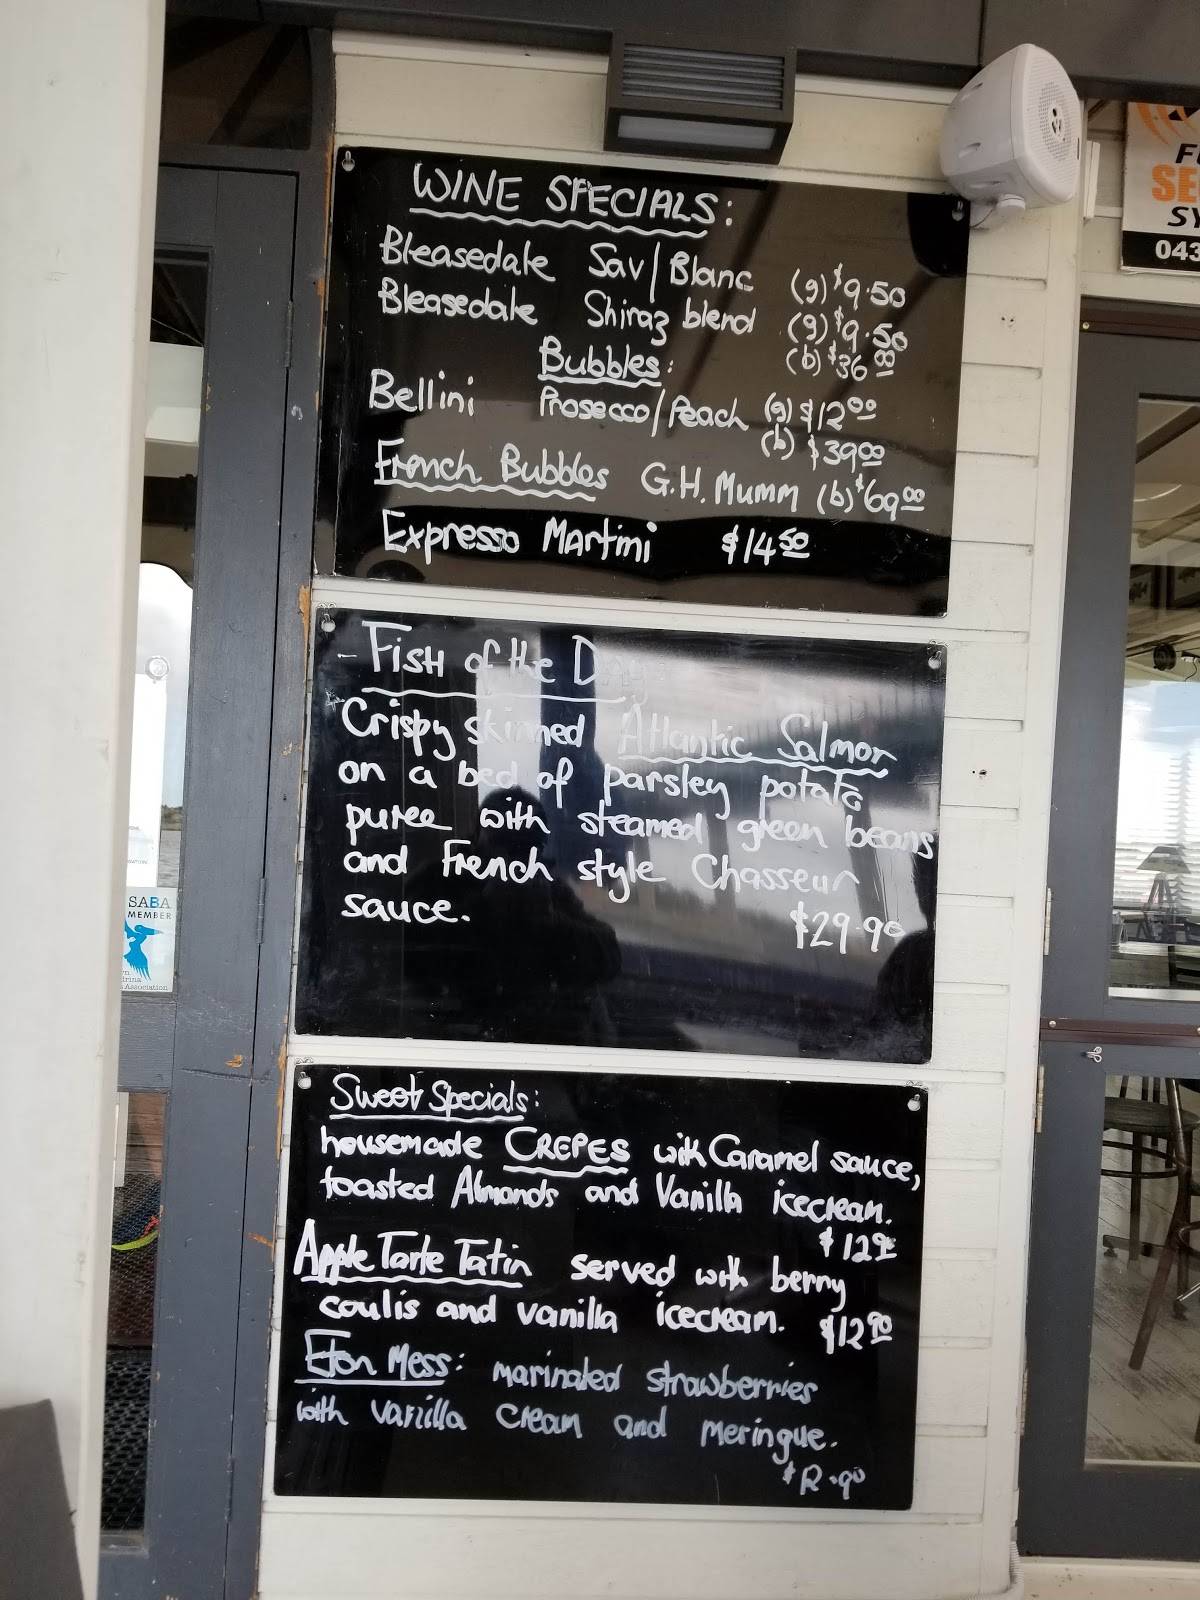 WINE SPECIALS:
Bleasedale Sav/Blanc (g) $9.50
Bleasedale Shiraz blend (g) $9.50
(b) $36 00
Bubbles:
Bellini Prosecco/Peach (g) $12 00
(b) $39 00
French Bubbles G.H. Mumm (b) $69 00
Expresso Martini $14 50
- Fish of the Day:
Crispy skinned Atlantic Salmon
on a bed of parsley potato
puree with steamed green beans
and French style Chasseur
sauce.
$29.90
Sweet Specials:
housemade CREPES with Caramel sauce,
toasted Almonds and Vanilla icecream.
$12 90
Apple Tarte Tatin served with berry
coulis and vanilla icecream. $12 90
Eton Mess: marinated strawberries
with vanilla cream and meringue.
SABA
MEMBER
Association
SY
043